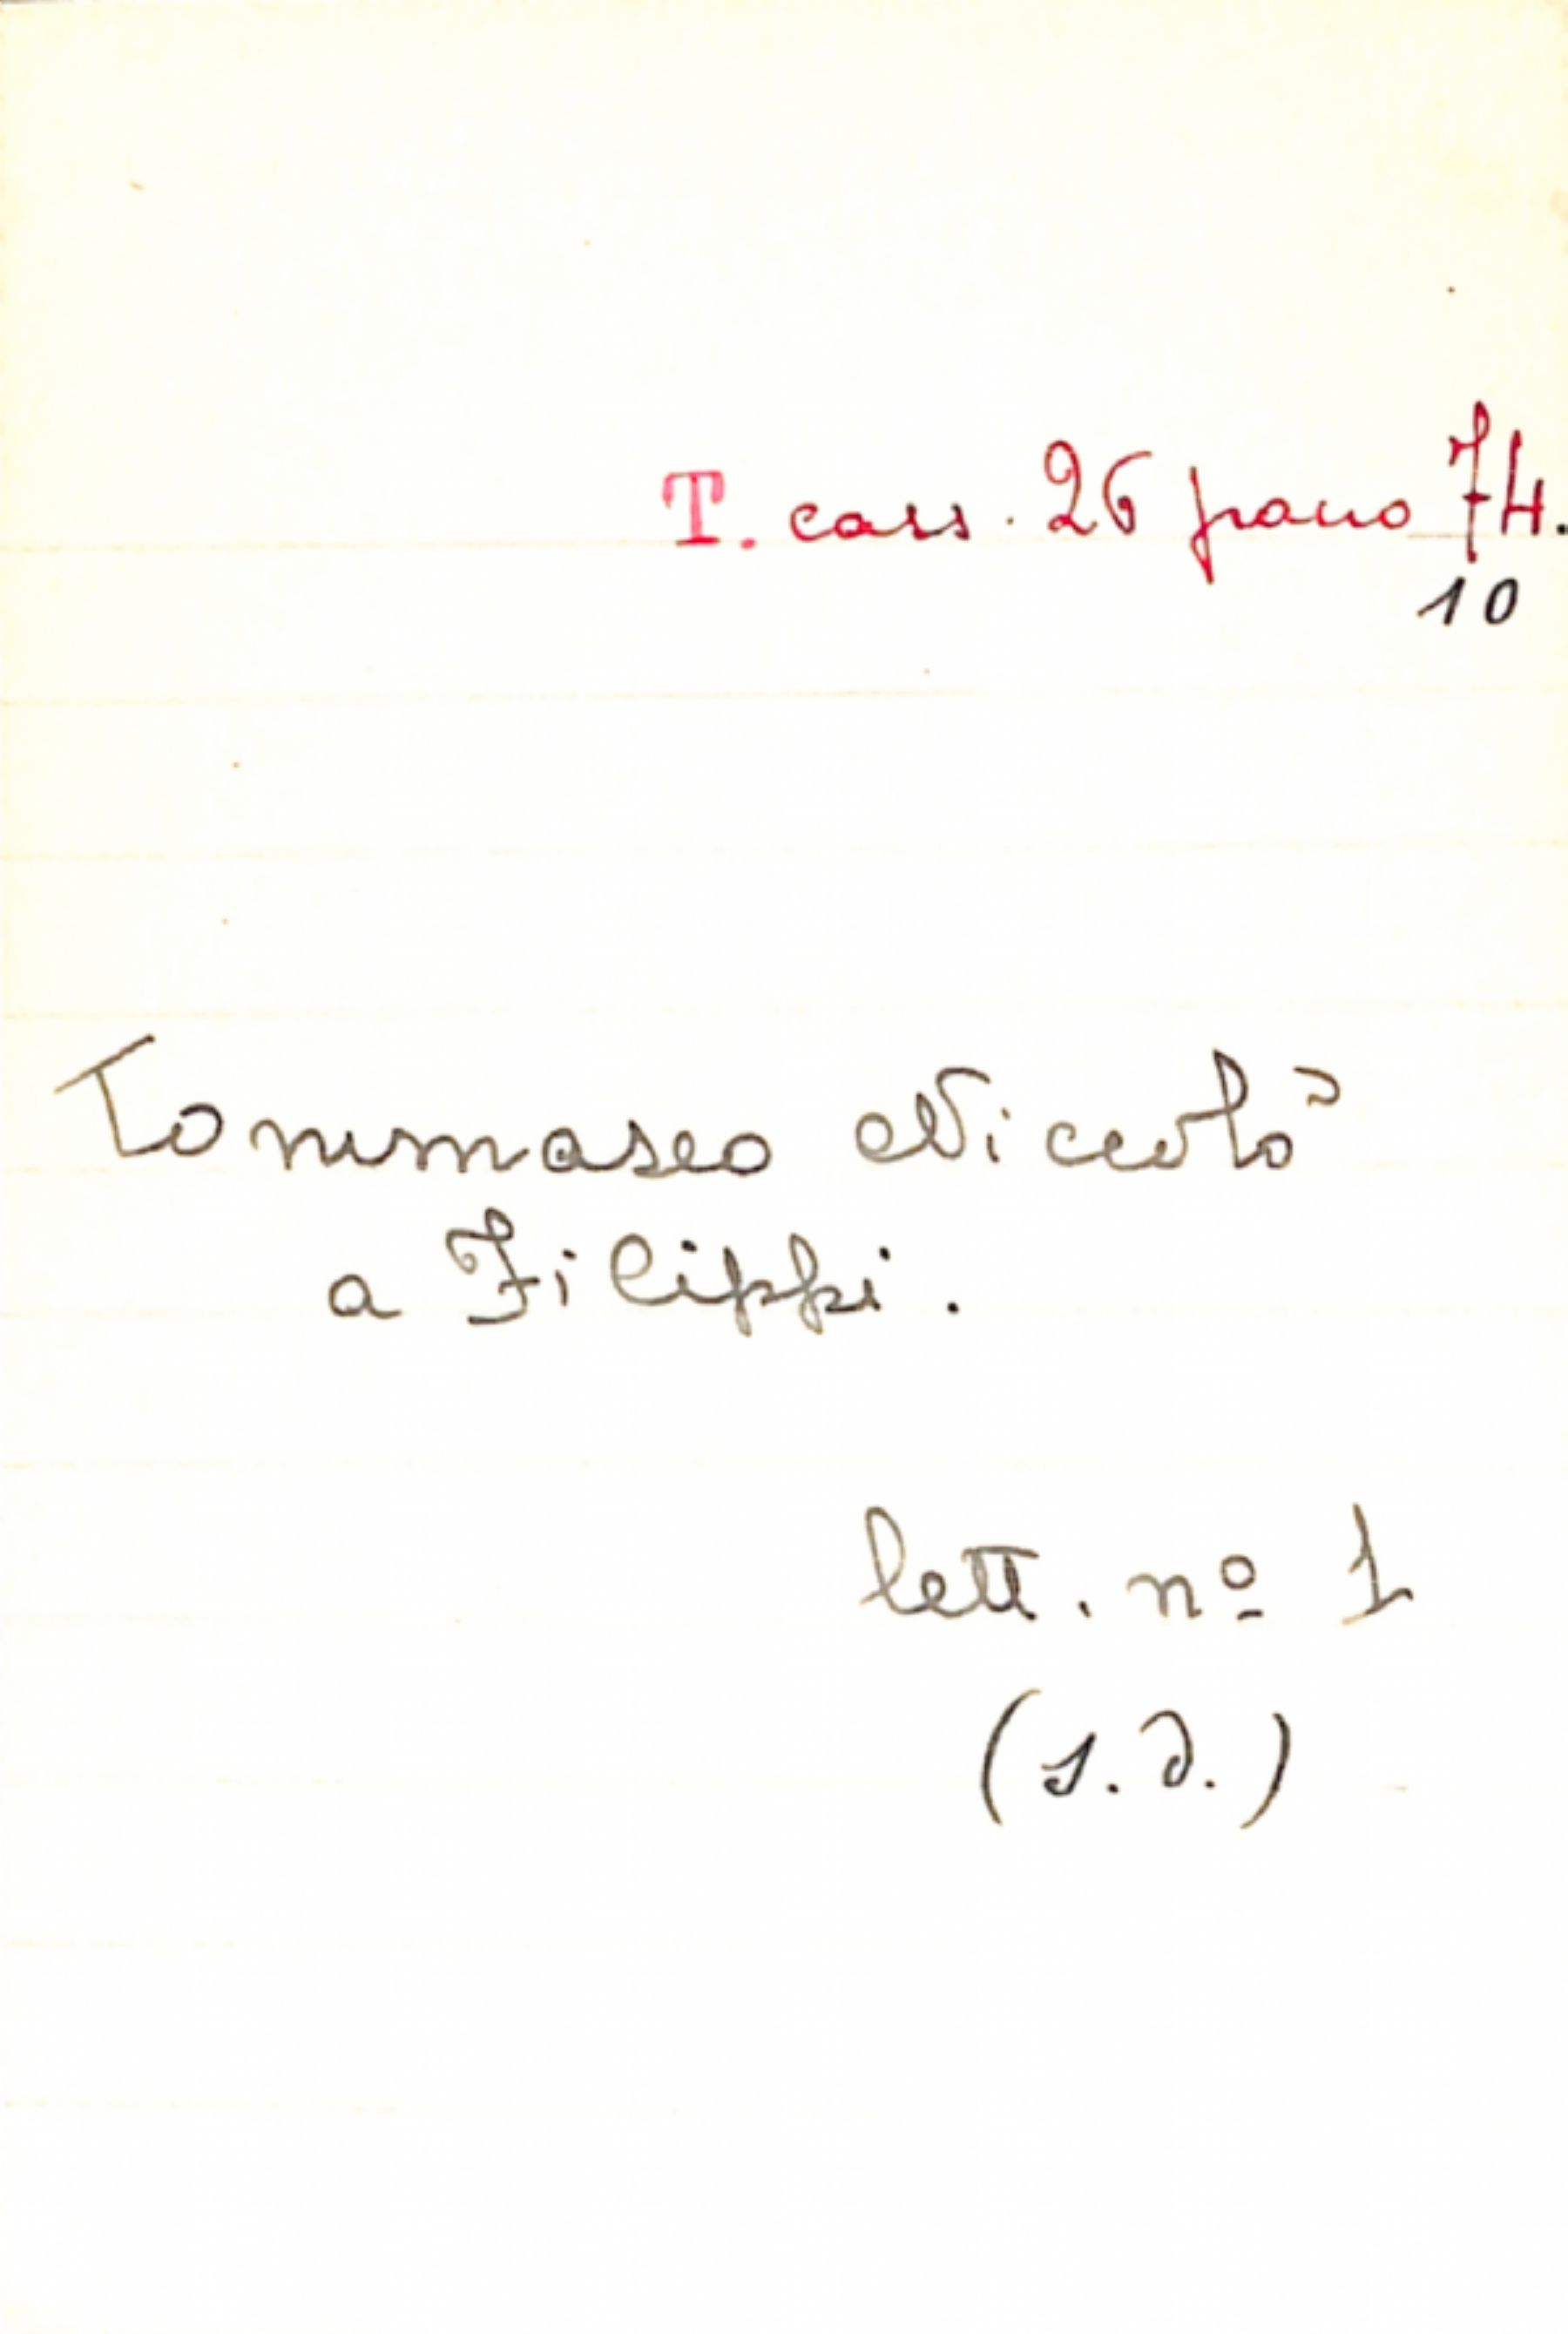 T. cass. 26 pacco 74.
10
Tommaseo Niccolò
a Filippi.
lett. nº 1
(s.d.)